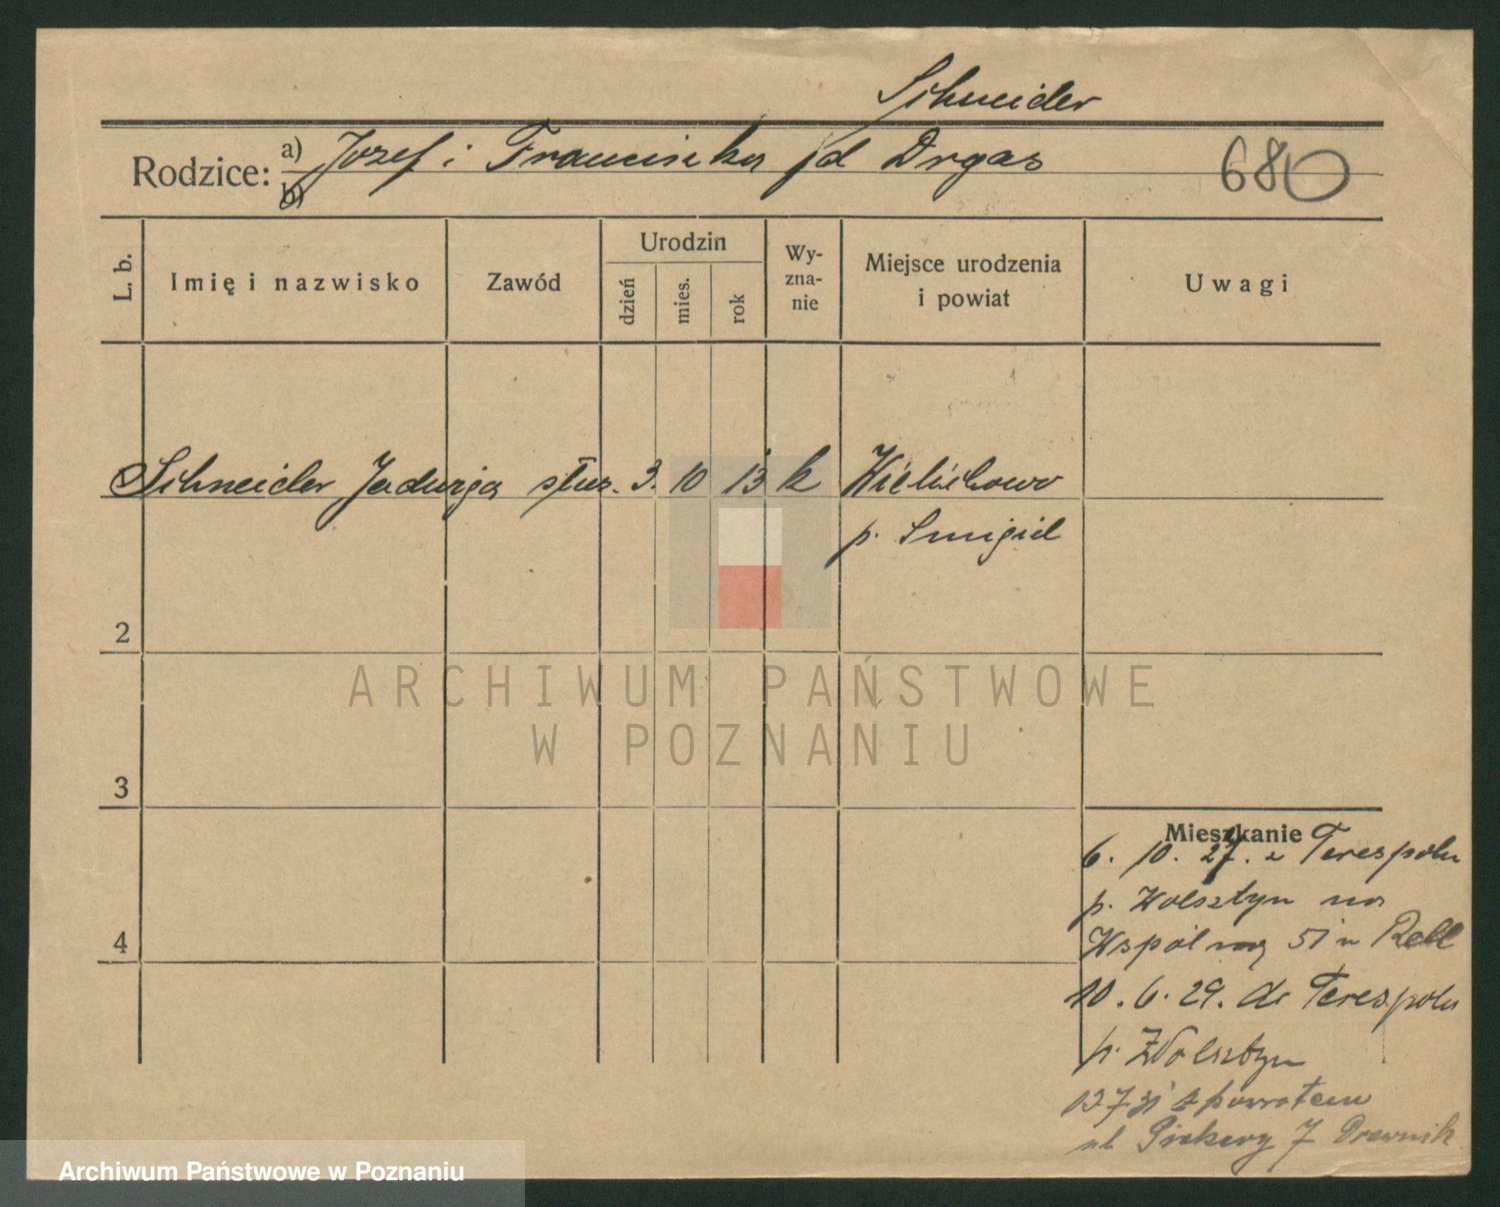 Schneider
Rodzice: a) Józef i Franciszka fd Drgas 680
b)
L. b. Imię i nazwisko Zawód Urodzin dzień mies. rok Wyznanie Miejsce urodzenia i powiat Uwagi
Schneider Jadwiga służ. 3. 10 13 k Wielichowo
p. Smigiel
2
ARCHIWUM PAŃSTWOWE
W POZNANIU
3
Mieszkanie
6. 10. 27. z Terespolu
p. Wolsztyn na
Wspólną 51 u Rell
4
10. 6. 29. do Terespolu
p. Wolsztyn
z powrotem
ul. Piekary 7 Drewnik
Archiwum Państwowe w Poznaniu